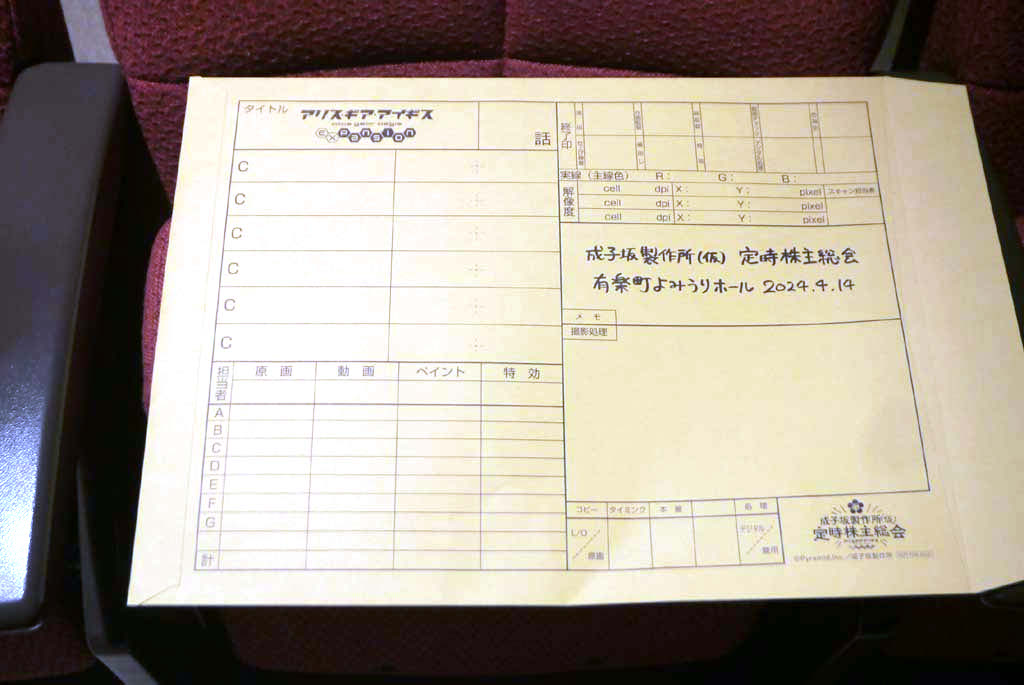 タイトル
アリスギア・アイギス
expansion
話
終了印
C
C
C
C
C
C
実線(主線色) R: G: B:
解像度
cell dpi X: Y: pixel スキャン担当者
cell dpi X: Y: pixel
cell dpi X: Y: pixel
成子坂製作所(仮) 定時株主総会
有楽町よみうりホール 2024.4.14
メモ
撮影処理
担当者 原画 動画 ペイント 特効
A
B
C
D
E
F
G
計
コピー タイミング 本撮 処理
L/O
原画
デジタル
兼用
成子坂製作所(仮)
定時株主総会
©Pyramid,Inc./成子坂製作所